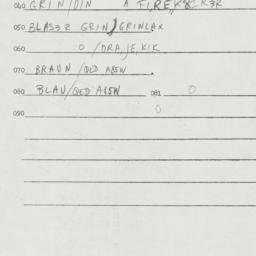 040 GRIN/DIN A
050 BLASER GRIN/GRINLAX
060 0/DRA,JE,KIK
070 BRAUN/QLD ABSW.
080 BLAU/QLD ABSW 081 0
090 0